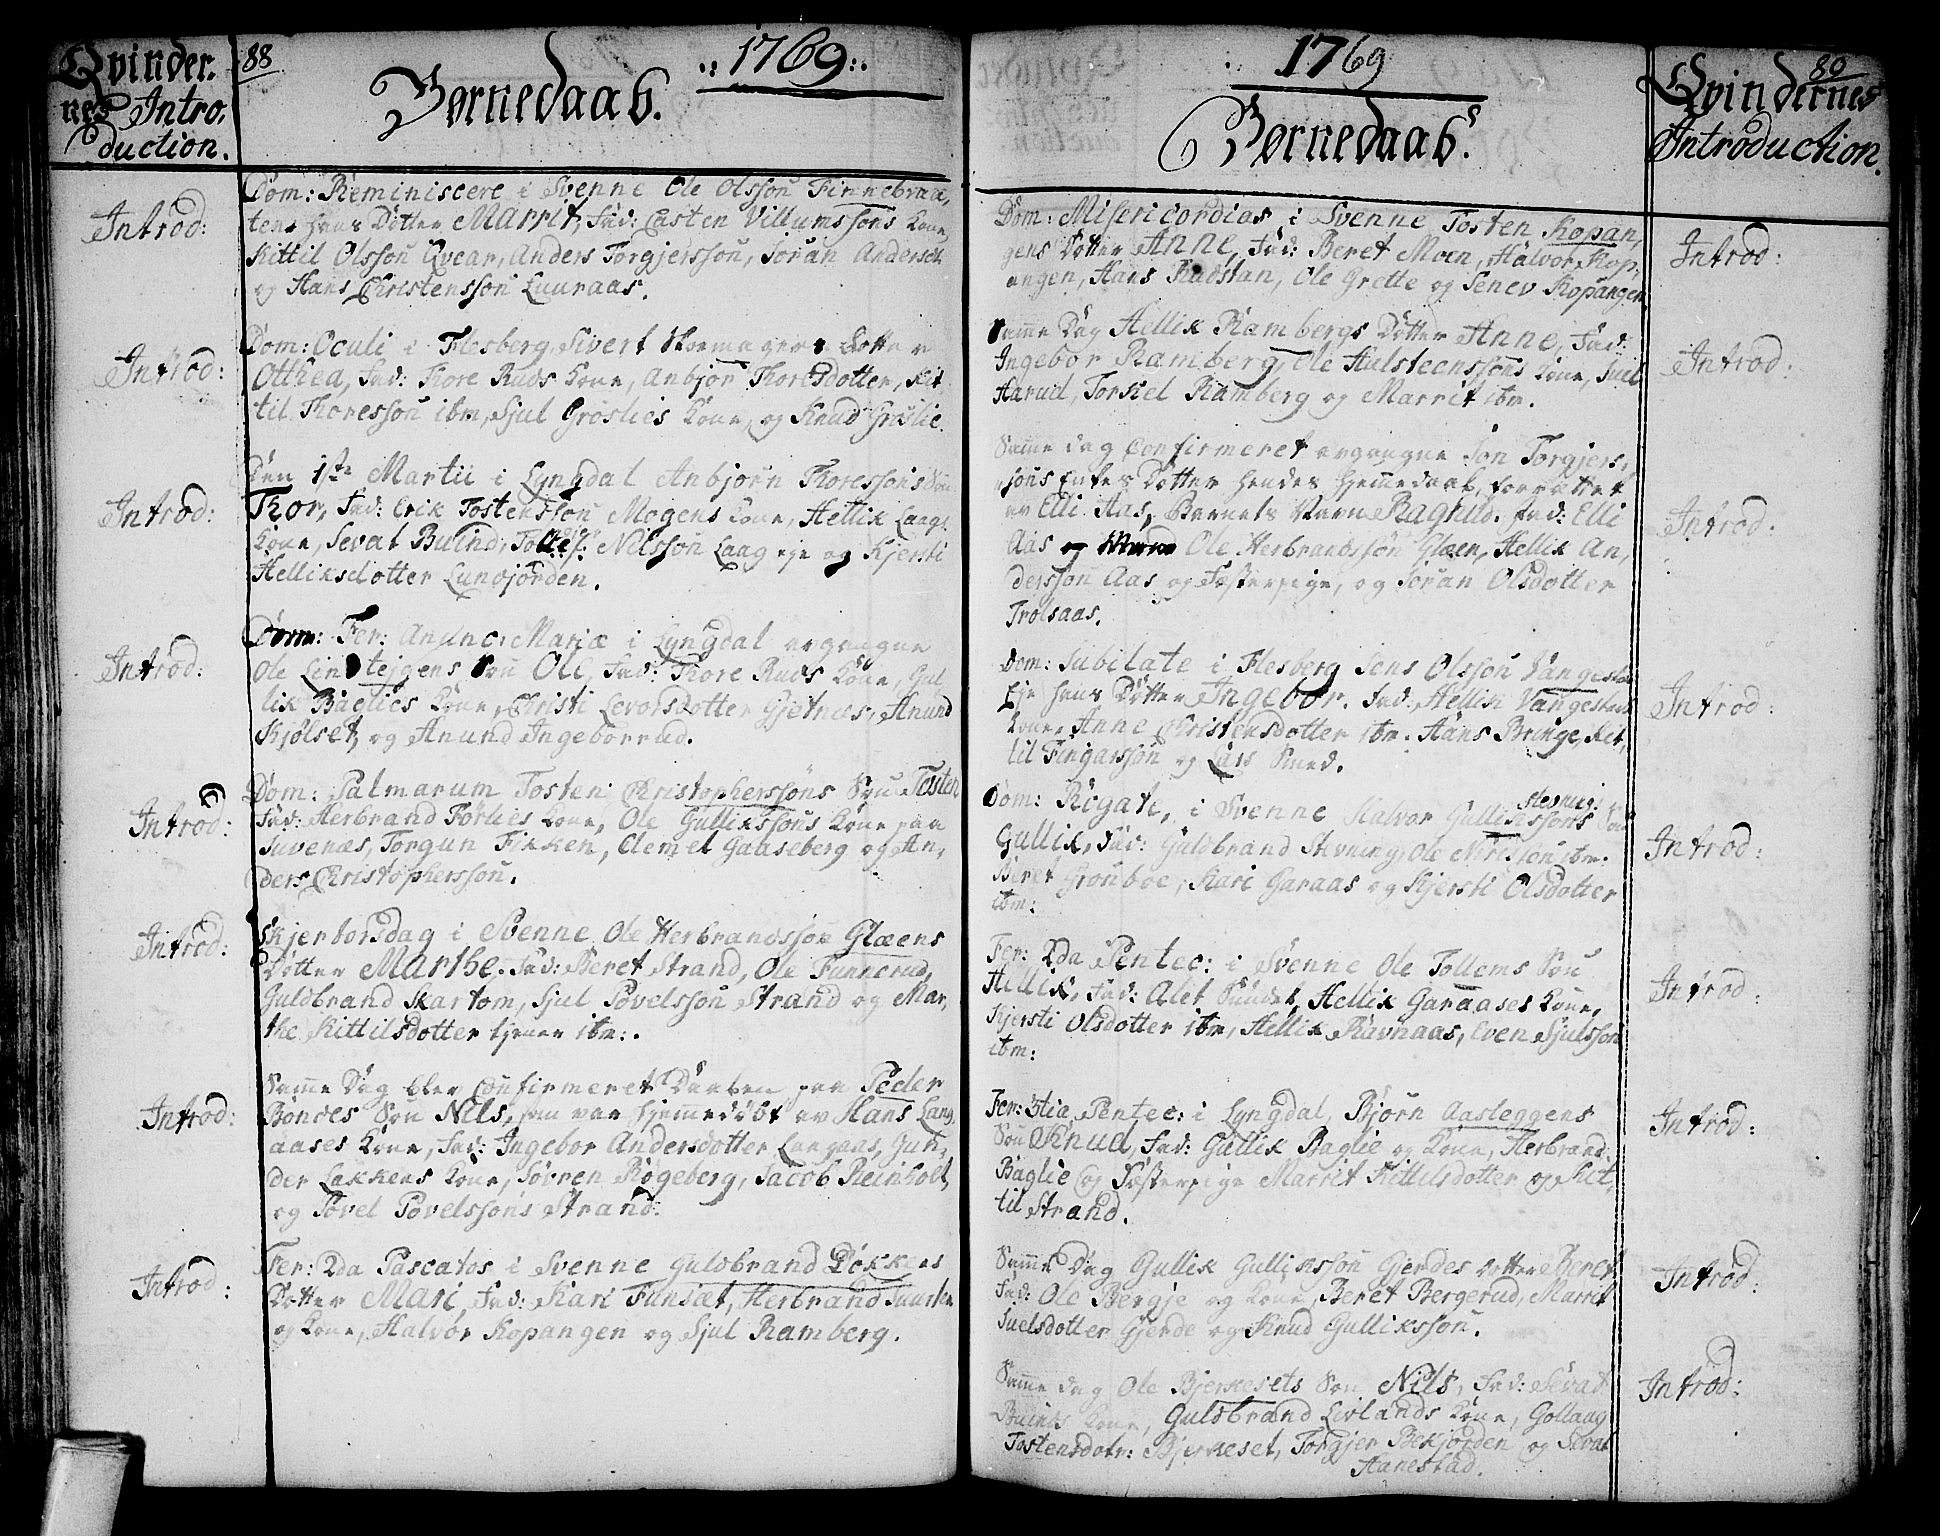 Qvinder-
nes Intro-
duction.
88
1769
Børnedaab.
Introd:
Dom: Reminiscere i Svenne Ole Olssøn Finnebraa,
tens hans Dotter Marrit, Fad: Casten Villumssøns Kone,
Kittil Olssøn Qvear, Anders Torgjerssøn, Joran Andersd:
og Hans Christenssøn Luuraas.
Introd:
Dom: Oculi i Flesberg, Sivert Skomagers Dotter
Otthea, Fad: Thore Ruds Kone, Anbjør Thoresdotter, Kit
til Thoressøn ibm, Sjul Grøslies Kone, og Knud Grøslie.
Introd:
Den 1ste Martii i Lyngdal Anbjørn Thoressøns Søn
Thor, Fad: Erik Tostenssøn Mogens Kone, Hellik Laags
Kone, Sevat Buind, Tollef Nilssøn Laag eje og Kjersti
Helliksdotter Lundjorden.
Introd:
Dom: Fer: Anunc: Mariæ i Lyngdal ægvngne
Ole Lindstejgens Søn Ole, Fad: Thore Ruds Kone, Gul
lik Baglies Kone, Christi Levorsdotter Gjetnes, Anund
Kjølset, og Anund Ingeborrud.
Introd:
Dom: Palmarum Tosten Christopherssøns Søn Tosten
Fad: Herbrand Førlies Kone, Ole Gullikssøns Kone paa
Juvenæs, Torgun Fikken, Clemet Gaaseberg og An,
ders Christopherssøn.
Introd:
Skjertorsdag i Svenne Ole Herbrandssøn Glæens
Dotter Marthe. Fad: Beret Strand, Ole Funnerud,
Guldbrand Skartom, Sjul Povelssøn Strand og Mar,
the Kittilsdotter tjener ibm:.
Introd:
Samme Dag blev Confirmeret Daaben paa Peder
Bondes Søn Nils, som var hjemmedøbt av Hans Lang
aases Kone, Fad: Ingebor Andersdotter Langaas, Gun,
der Løkkens Kone, Søvren Rogeberg, Jacob Reinholt,
og Povel Povelssøns Strand.
Introd:
Fer: 2da Pascatos i Svenne Guldbrand Døkkens
Dotter Mari, Fad: Kari Funsæt, Herbrand
og Kone, Halvor Kopangen og Sjul Ramberg.
1769
80
Børnedaab.
Qvindernes
Introduction.
Dom: Misericordias i Svenne Tosten Kopan,
gens Dotter Anne, Fad: Beret Moen, Halvor Kop,
angen, Hans Rudstan, Ole Grette og Senev Kopangen
Introd:
Samme Dag Hellik Rambergs Dotter Anne, Fad:
Ingebor Ramberg, Ole Halsteenssøns Kone, Juel
Harud, Torkel Ramberg og Marrit ibm.
Introd:
Samme dag Confirmeret Jon Torgjers,
søns Dotter hendes hjemmedaab, forrettet
av Elli Aas, Barnets Navn Ragnild. Fad: Elli
Aas og Ole Herbrandssøn Glæen, Hellik An,
derssøn Aas og Fæsterpige, og Joran Olsdotter
Trolsaas.
Introd:
Dom: Jubilate i Flesberg Jens Olssøn Vangestad
Eje hans Dotter Ingebor. Fad: Hellik Vangestads
Kone, Anne Christensdotter ibm. Hans Bringe, Kit,
til Fingarssøn og Lars Smed.
Introd:
Dom: Rogate, i Svenne Halvor Gullikssøns Stevning: Søn
Gullik, Fad: Guldbrand Stevning, Ole Nirissøn ibm.
Beret Gronboe, Kari Garaas og Kjersti Olsdotter
ibm:
Introd:
Fer: 2da Pentec: i Svenne Ole Tollems Søn
Hellik, Fad: Alet Sundet, Hellik Garaases Kone,
Kjersti Olsdotter ibm, Hellik Ravnaas, Even Sjulssøn
ibm:
Introd:
Fer: 3tia Pentec: i Lyngdal, Bjørn Aasleggens
Søn Knud, Fad: Gullik Baglie og Kone, Herbrand
Baglie og Fæsterpige Marrit Kittilsdotter og Kit,
til Strand.
Introd:
Samme Dag Gullik Gullikssøn Gjerdes Dotter Beret
Fad: Ole Bergje og Kone, Beret Bergerud, Marrit
Juelsdotter Gjerde og Knud Gullikssøn.
Introd:
Samme dag Ole Bjerkesets Søn Nils, Fad: Sevat
Buinds Kone, Guldbrand Livlands Kone, Gollaug
Tostensdotr: Bjerkeset, Torgjer Bekjorden og Sevat
Aanestad.
Introd: